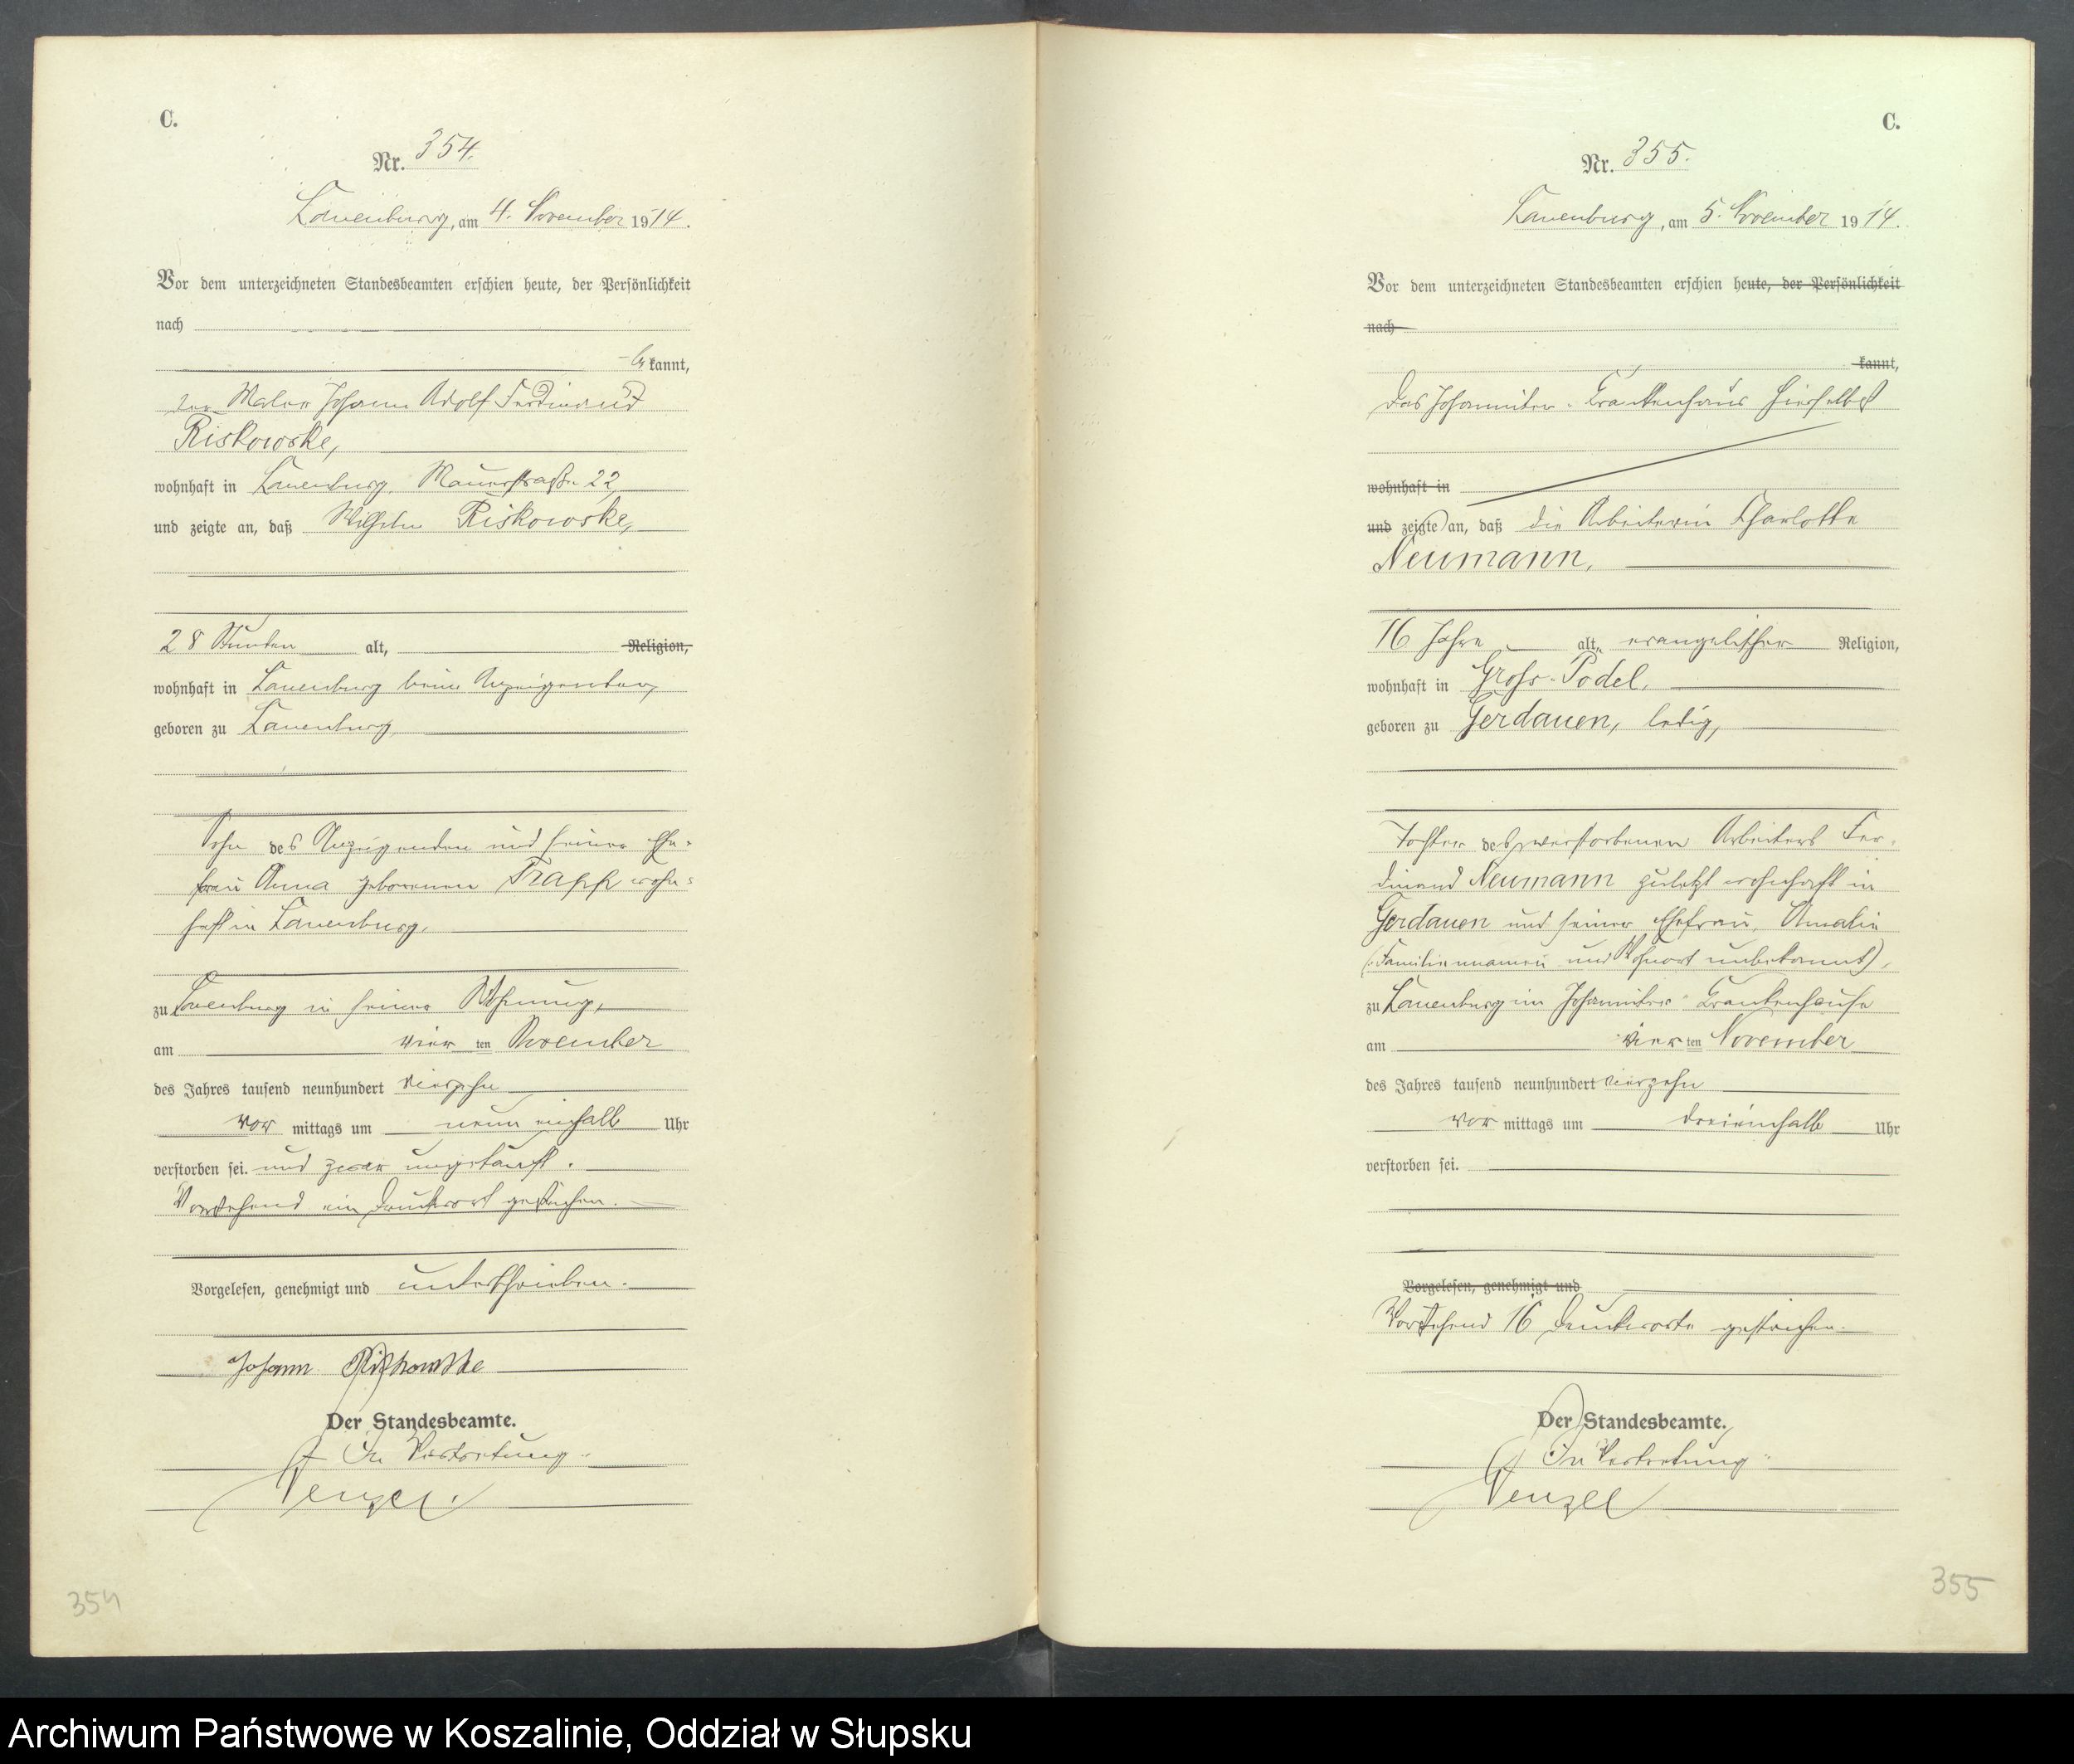 C.
Nr. 354.
Lauenburg, am 4. November 1914.
Vor dem unterzeichneten Standesbeamten erschien heute, der Persönlichkeit
nach
kannt,
der Maler Johann Adolf Ferdinand
Riskowske,
wohnhaft in Lauenburg, Mauerstraße 22,
und zeigte an, daß Wilhelm Riskowske,
28 Stunden alt, Religion,
wohnhaft in Lauenburg beim Anzeigenden,
geboren zu Lauenburg,
Sohn des Anzeigenden und seiner Ehe-
frau Anna geborenen Trapp wohn-
haft in Lauenburg,
zu Lauenburg in seiner Wohnung,
am vier ten November
des Jahres tausend neunhundert vierzehn
vor mittags um neun einhalb Uhr
verstorben sei. und zwar ungetauft.
Vorstehend ein Druckwort gestrichen.
Vorgelesen, genehmigt und unterschrieben.
Johann Riskowske
Der Standesbeamte.
In Vertretung.
Wenzel.
354
C.
Nr. 355.
Lauenburg, am 5. November 1914.
Vor dem unterzeichneten Standesbeamten erschien heute, der Persönlichkeit
nach
kannt,
Das Johanniter-Krankenhaus hierselbst
wohnhaft in
und zeigte an, daß die Arbeiterin Charlotte
Neumann,
16 Jahre alt, evangelischer Religion,
wohnhaft in Gross-Podel,
geboren zu Gerdauen, ledig,
Tochter des verstorbenen Arbeiters Fer-
dinand Neumann zuletzt wohnhaft in
Gerdauen und seiner Ehefrau, Amalie
(Familiennamen und Wohnort unbekannt),
zu Lauenburg im Johanniter-Krankenhause
am vier ten November
des Jahres tausend neunhundert vierzehn
vor mittags um dreieinhalb Uhr
verstorben sei.
Vorgelesen, genehmigt und
Vorstehend 16 Druckworte gestrichen.
Der Standesbeamte.
In Vertretung.
Wenzel
355
Archiwum Państwowe w Koszalinie, Oddział w Słupsku